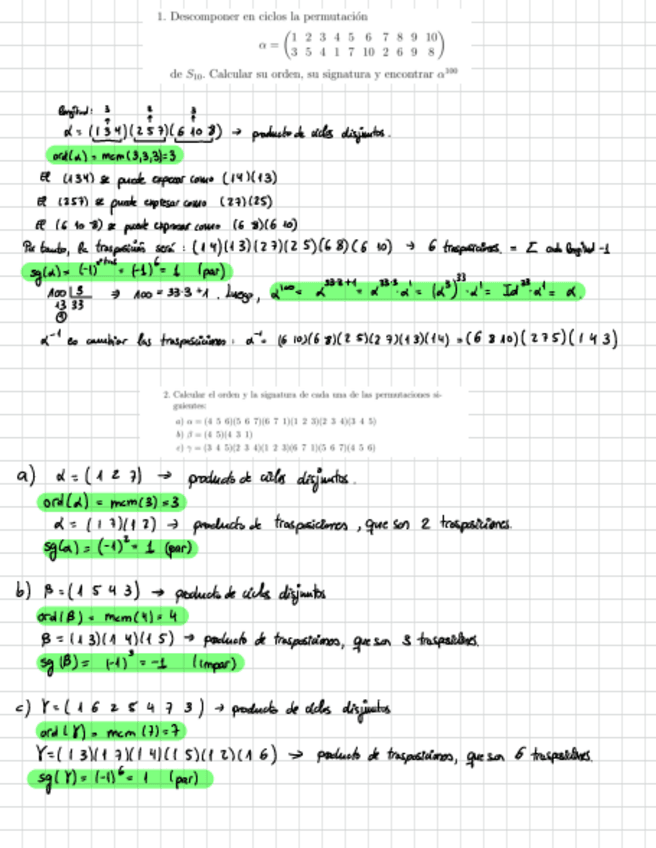 1. Descomponer en ciclos la permutación
α = (1 2 3 4 5 6 7 8 9 10
3 5 4 1 7 10 2 6 9 8)
de S₁₀. Calcular su orden, su signatura y encontrar α¹⁰⁰
longitud: 3 3 3
α = (1 3 4)(2 5 7)(6 10 8) → producto de ciclos disjuntos.
ord(α) = mcm(3,3,3)=3
El (134) se puede expresar como (14)(13)
El (257) se puede expresar como (27)(25)
El (6 10 8) se puede expresar como (6 8)(6 10)
Por tanto, la trasposición será: (14)(13)(27)(25)(68)(6 10) → 6 trasposiciones. = Σ cada longitud -1
sg(α) = (-1) = (-1)⁶ = 1 (par)
100 | 3 ⇒ 100 = 33·3 + 1. Luego, α¹⁰⁰ = α³³·³⁺¹ = α³³·³·α¹ = (α³)³³·α¹ = Id³³·α¹ = α.
13 33
1
α⁻¹ es cambiar las trasposiciones: α⁻¹ = (6 10)(6 8)(2 5)(2 7)(1 3)(14) = (6 8 10)(2 7 5)(1 4 3)
2. Calcular el orden y la signatura de cada una de las permutaciones si-
guientes:
a) α = (4 5 6)(5 6 7)(6 7 1)(1 2 3)(2 3 4)(3 4 5)
b) β = (4 5)(4 3 1)
c) γ = (3 4 5)(2 3 4)(1 2 3)(6 7 1)(5 6 7)(4 5 6)
a) α = (1 2 7) → producto de ciclos disjuntos.
ord(α) = mcm(3) = 3
α = (1 7)(1 2) → producto de trasposiciones, que son 2 trasposiciones.
sg(α) = (-1)² = 1 (par)
b) β = (1 5 4 3) → producto de ciclos disjuntos
ord(β) = mcm(4) = 4
β = (1 3)(1 4)(1 5) → producto de trasposiciones, que son 3 trasposiciones.
sg(β) = (-1)³ = -1 (impar)
c) γ = (1 6 2 5 4 7 3) → producto de ciclos disjuntos
ord(γ) = mcm(7) = 7
γ = (1 3)(1 7)(1 4)(1 5)(1 2)(1 6) → producto de trasposiciones, que son 6 trasposiciones.
sg(γ) = (-1)⁶ = 1 (par)